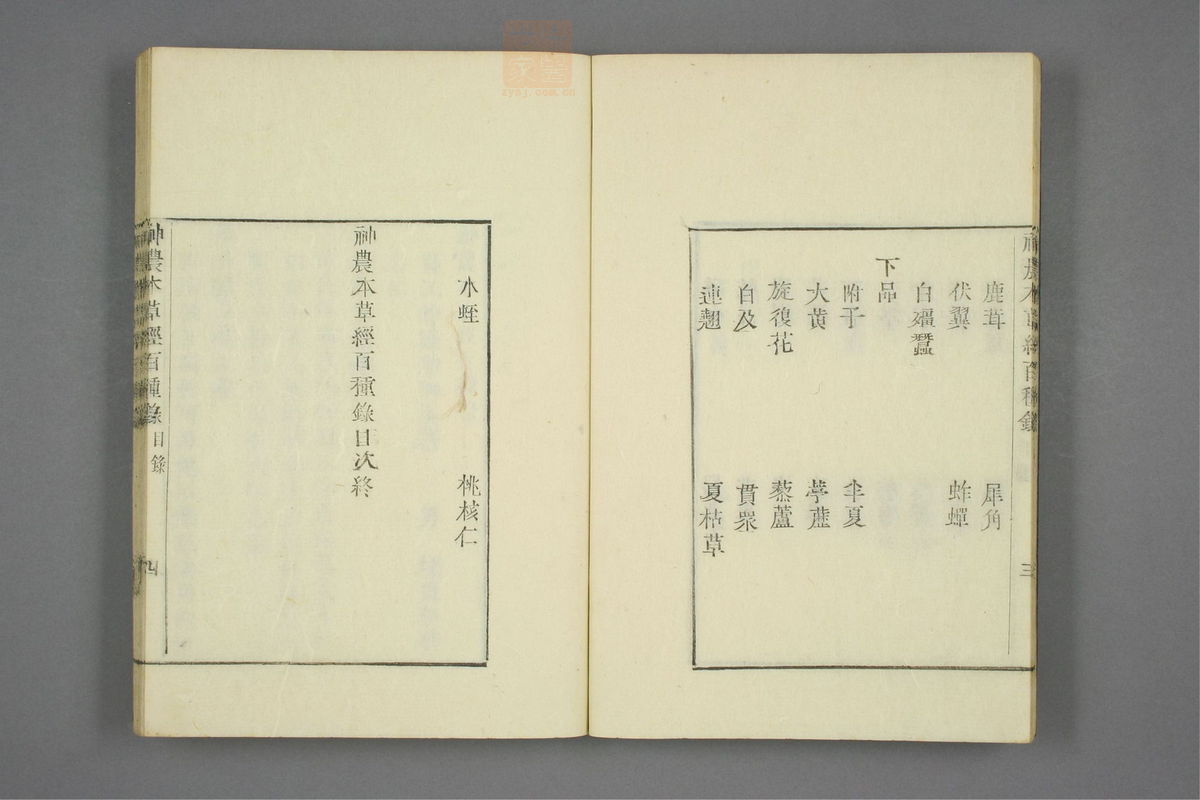 神農本草經百種錄
三
鹿茸 犀角
伏翼 蚱蟬
白殭蠶
下品
附子 半夏
大黃 葶藶
旋復花 藜蘆
白及 貫衆
連翹 夏枯草
水蛭 桃核仁
神農本草經百種錄目次終
神農本草經百種錄 目錄
四
zysj.com.cn